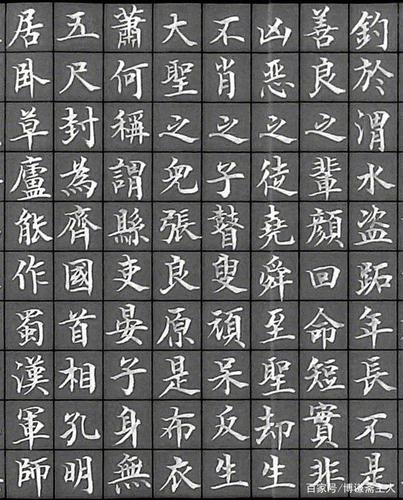 釣於渭水盜跖年長不是
善良之輩顏回命短實非
凶惡之徒堯舜至聖却生
不肖之子瞽叟頑呆反生
大聖之兒張良原是布衣
蕭何稱謂縣吏晏子身無
五尺封為齊國首相孔明
居卧草廬能作蜀漢軍師
百家号/博斋主人